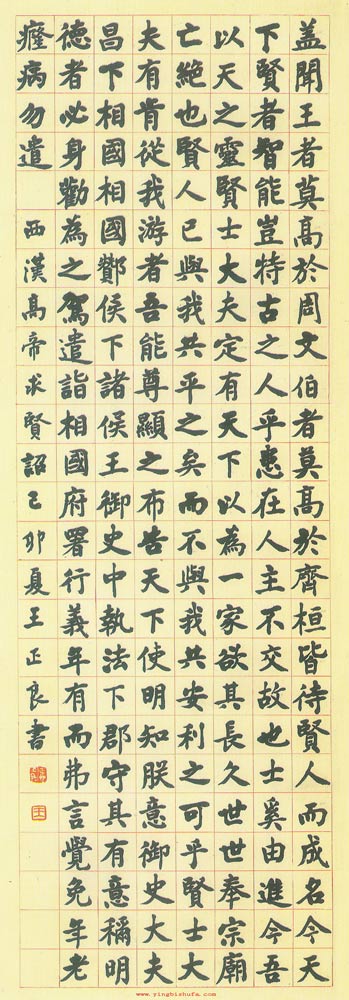 蓋聞王者莫高於周文伯者莫高於齊桓皆待賢人而成名今天
下賢者智能豈特古之人乎患在人主不交故也士奚由進今吾
以天之靈賢士大夫定有天下以為一家欲其長久世世奉宗廟
亡絕也賢人已與我共平之矣而不與我共安利之可乎賢士大
夫有肯從我游者吾能尊顯之布告天下使明知朕意御史大夫
昌下相國相國酇侯下諸侯王御史中執法下郡守其有意稱明
德者必身勸為之駕遣詣相國府署行義年有而弗言覺免年老
癃病勿遣 西漢高帝求賢詔己卯夏王正良書
www.yingbishufa.com